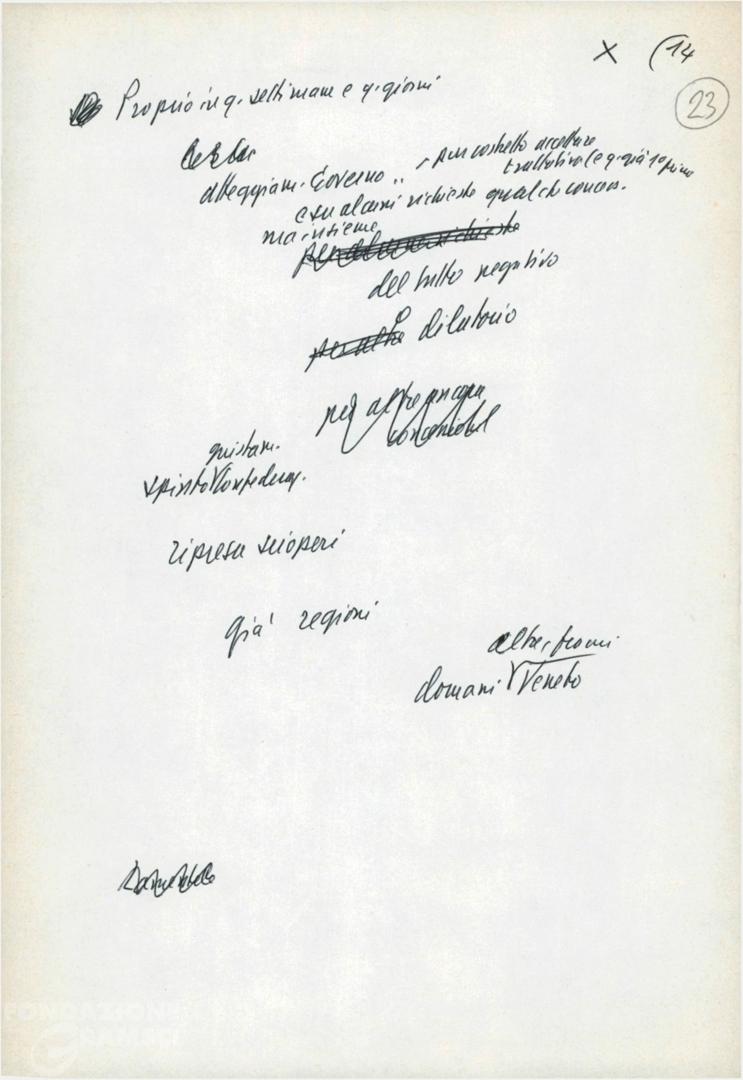 X (14
23
Proprio in q. settimane e q. giorni
atteggiam. Governo .. - pur costretto accettare
trattativa (e q. già 1o primo
e su alcuni richieste qualche conces.
ma insieme
del tutto negativo
dilatorio
per altre ancora
giustam.
spinto Confederaz.
ripresa scioperi
già regioni
altre, fra cui
domani Veneto
FONDAZIONE
GRAMSCI